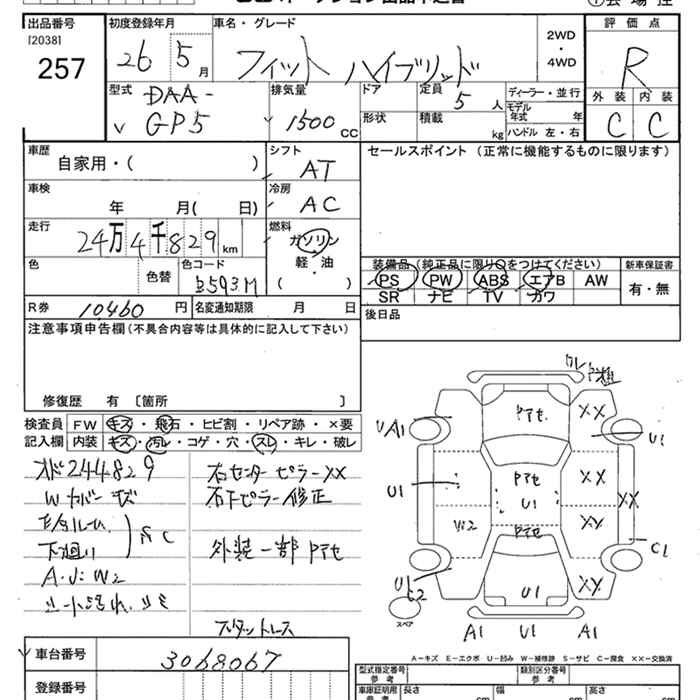 出品番号
[2038]
257
初度登録年月
26 5 月
車名・グレード
フィット ハイブリッド
2WD
・
4WD
評価点
R
外装 内装
C C
型式
DAA-
GP5
排気量
1500 cc
ドア
形状
定員
5 人
積載
kg
ディーラー・並行
モデル年式 年
ハンドル 左・右
車歴
自家用・( )
シフト
AT
セールスポイント (正常に機能するものに限ります)
車検
年 月( 日)
冷房
AC
走行
24万4千829km
燃料
ガソリン
軽・油
( )
色
色替
色コード
B593M
装備品 (純正品に限り○をつけてください)
PS PW ABS エアB AW
SR ナビ TV カワ
新車保証書
有・無
R券
10460円
名変通知期限 月 日
後日品
注意事項申告欄(不具合内容等は具体的に記入して下さい)
修復歴 有 〔箇所 〕
検査員
記入欄
FW キズ・飛石・ヒビ割・リペア跡・×要
内装 キズ・汚レ・コゲ・穴・スレ・キレ・破レ
244829
Wカバーキズ
下廻り
A.J:W2
右センターピラーXX
右下ピラー修正
外装一部アセ
スタットレス
UA1
アセ
XX
U1
U1
アセ
U1
XX
XX
W2
アセ
XX
C1
XX
U1
スペア
A1 U1 A1
A-キズ E-エクボ U-凹み W-補修跡 S-サビ C-腐食 XX-交換済
車台番号
3068067
登録番号
型式指定番号
参考
類別区分番号
参考
車庫証明用
参考
長さ cm
幅 cm
高さ cm